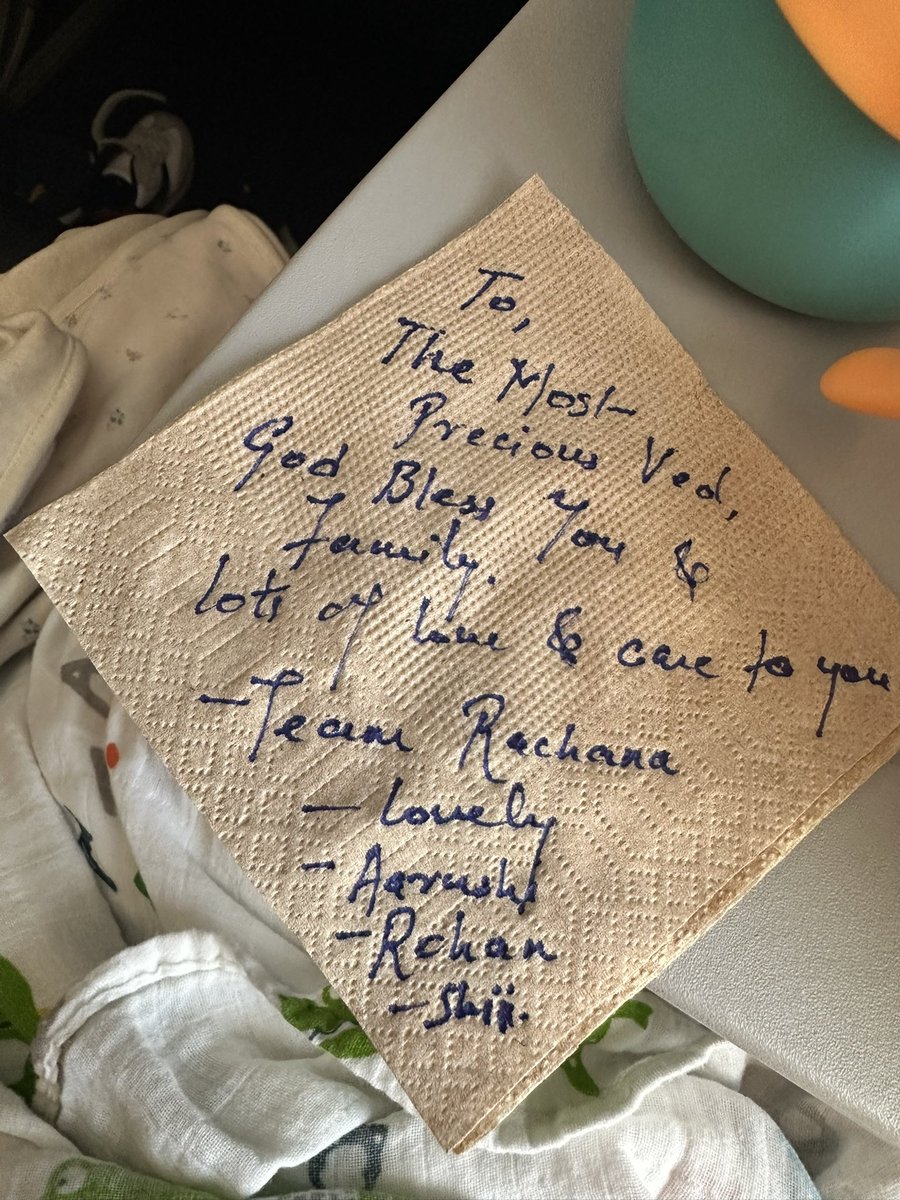 To,
The Most
Precious Ved,
God Bless You &
family.
lots of love & care to you
- Team Rachana
- lovely
- Aarushi
- Rohan